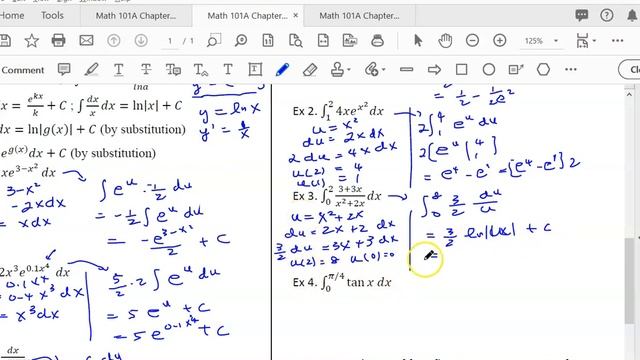 Math 101A Chapter...
Math 101A Chapter...
Math 101A Chapter...
1 / 1
125%
Comment
y = ln x
y' = 1/x
x = e^{kx}/k + C ; ∫ dx/x dx = ln|x| + C
dx = ln|g(x)| + C (by substitution)
e^{g(x)}dx + C (by substitution)
xe^{3−x²} dx
3-x²
-2xdx
= xdx
∫ e^u · -1/2 du
= -1/2 ∫ e^u du
= -e^{3-x²}/2 + C
2x³e^{0.1x⁴} dx
0.1x⁴
0.4x³ dx
= x³dx
5/2 · 2 ∫ e^u du
= 5 e^u + C
= 5 e^{0.1x⁴} + C
dx
= 1/2 - 1/2e²
Ex 2. ∫₁² 4xe^{x²} dx
u = x²
du = 2x dx
2 du = 4x dx
u(2) = 4
u(1) = 1
2 ∫₁⁴ e^u du
2 [e^u |₁⁴]
= e⁴ - e¹ = [e⁴ - e¹] 2
Ex 3. ∫₀² 3+3x/x²+2x dx
u = x² + 2x
du = 2x + 2 dx
3/2 du = 3x + 3 dx
u(2) = 8 u(0) = 0
∫₀⁸ 3/2 du/u
= 3/2 ln|ux| + C
=
Ex 4. ∫₀^{π/4} tan x dx